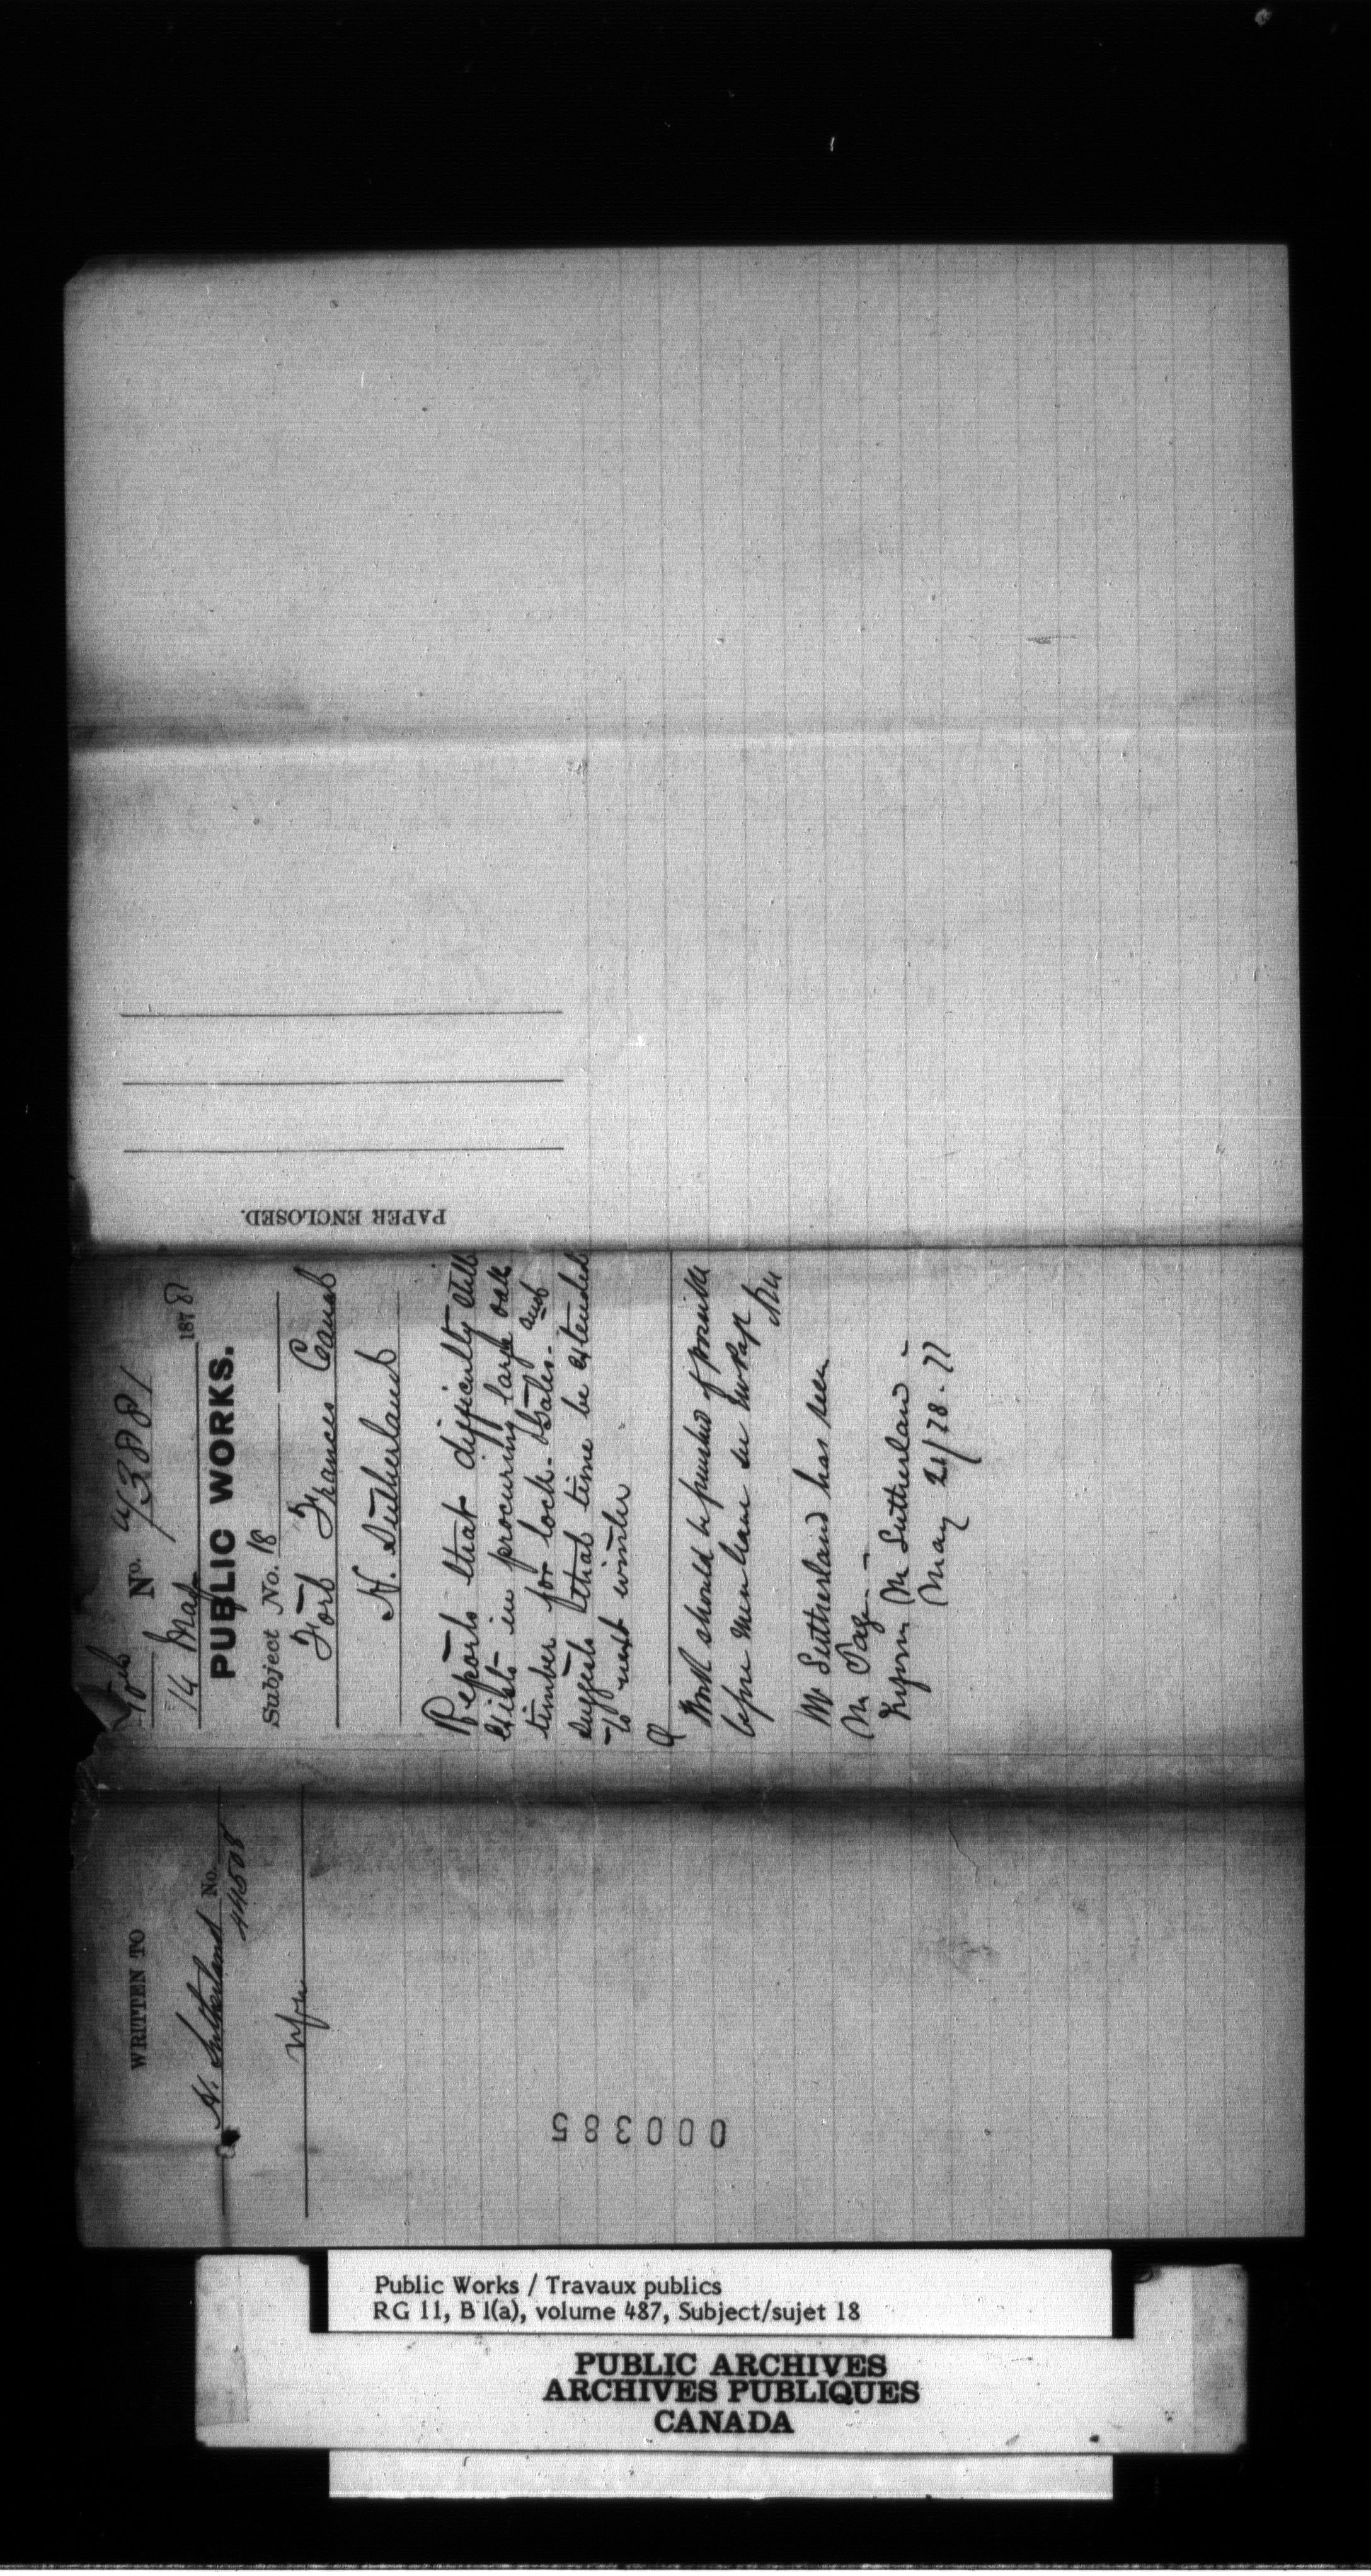 No. 43881
14 May 1878
PUBLIC WORKS.
Subject No. 18
Fort Frances Canal
H. Sutherland
Reports that difficulty still
exists in procuring large oak
timber for lock-gates. and
suggests that time be extended
to next winter
Work should be pushed if possible
before men leave
Mr Sutherland has seen
Mr Page
Inform Mr Sutherland
May 21/78.
PAPER ENCLOSED.
WRITTEN TO
No.
H. Sutherland 44508
000385
Public Works / Travaux publics
RG 11, B 1(a), volume 487, Subject/sujet 18
PUBLIC ARCHIVES
ARCHIVES PUBLIQUES
CANADA